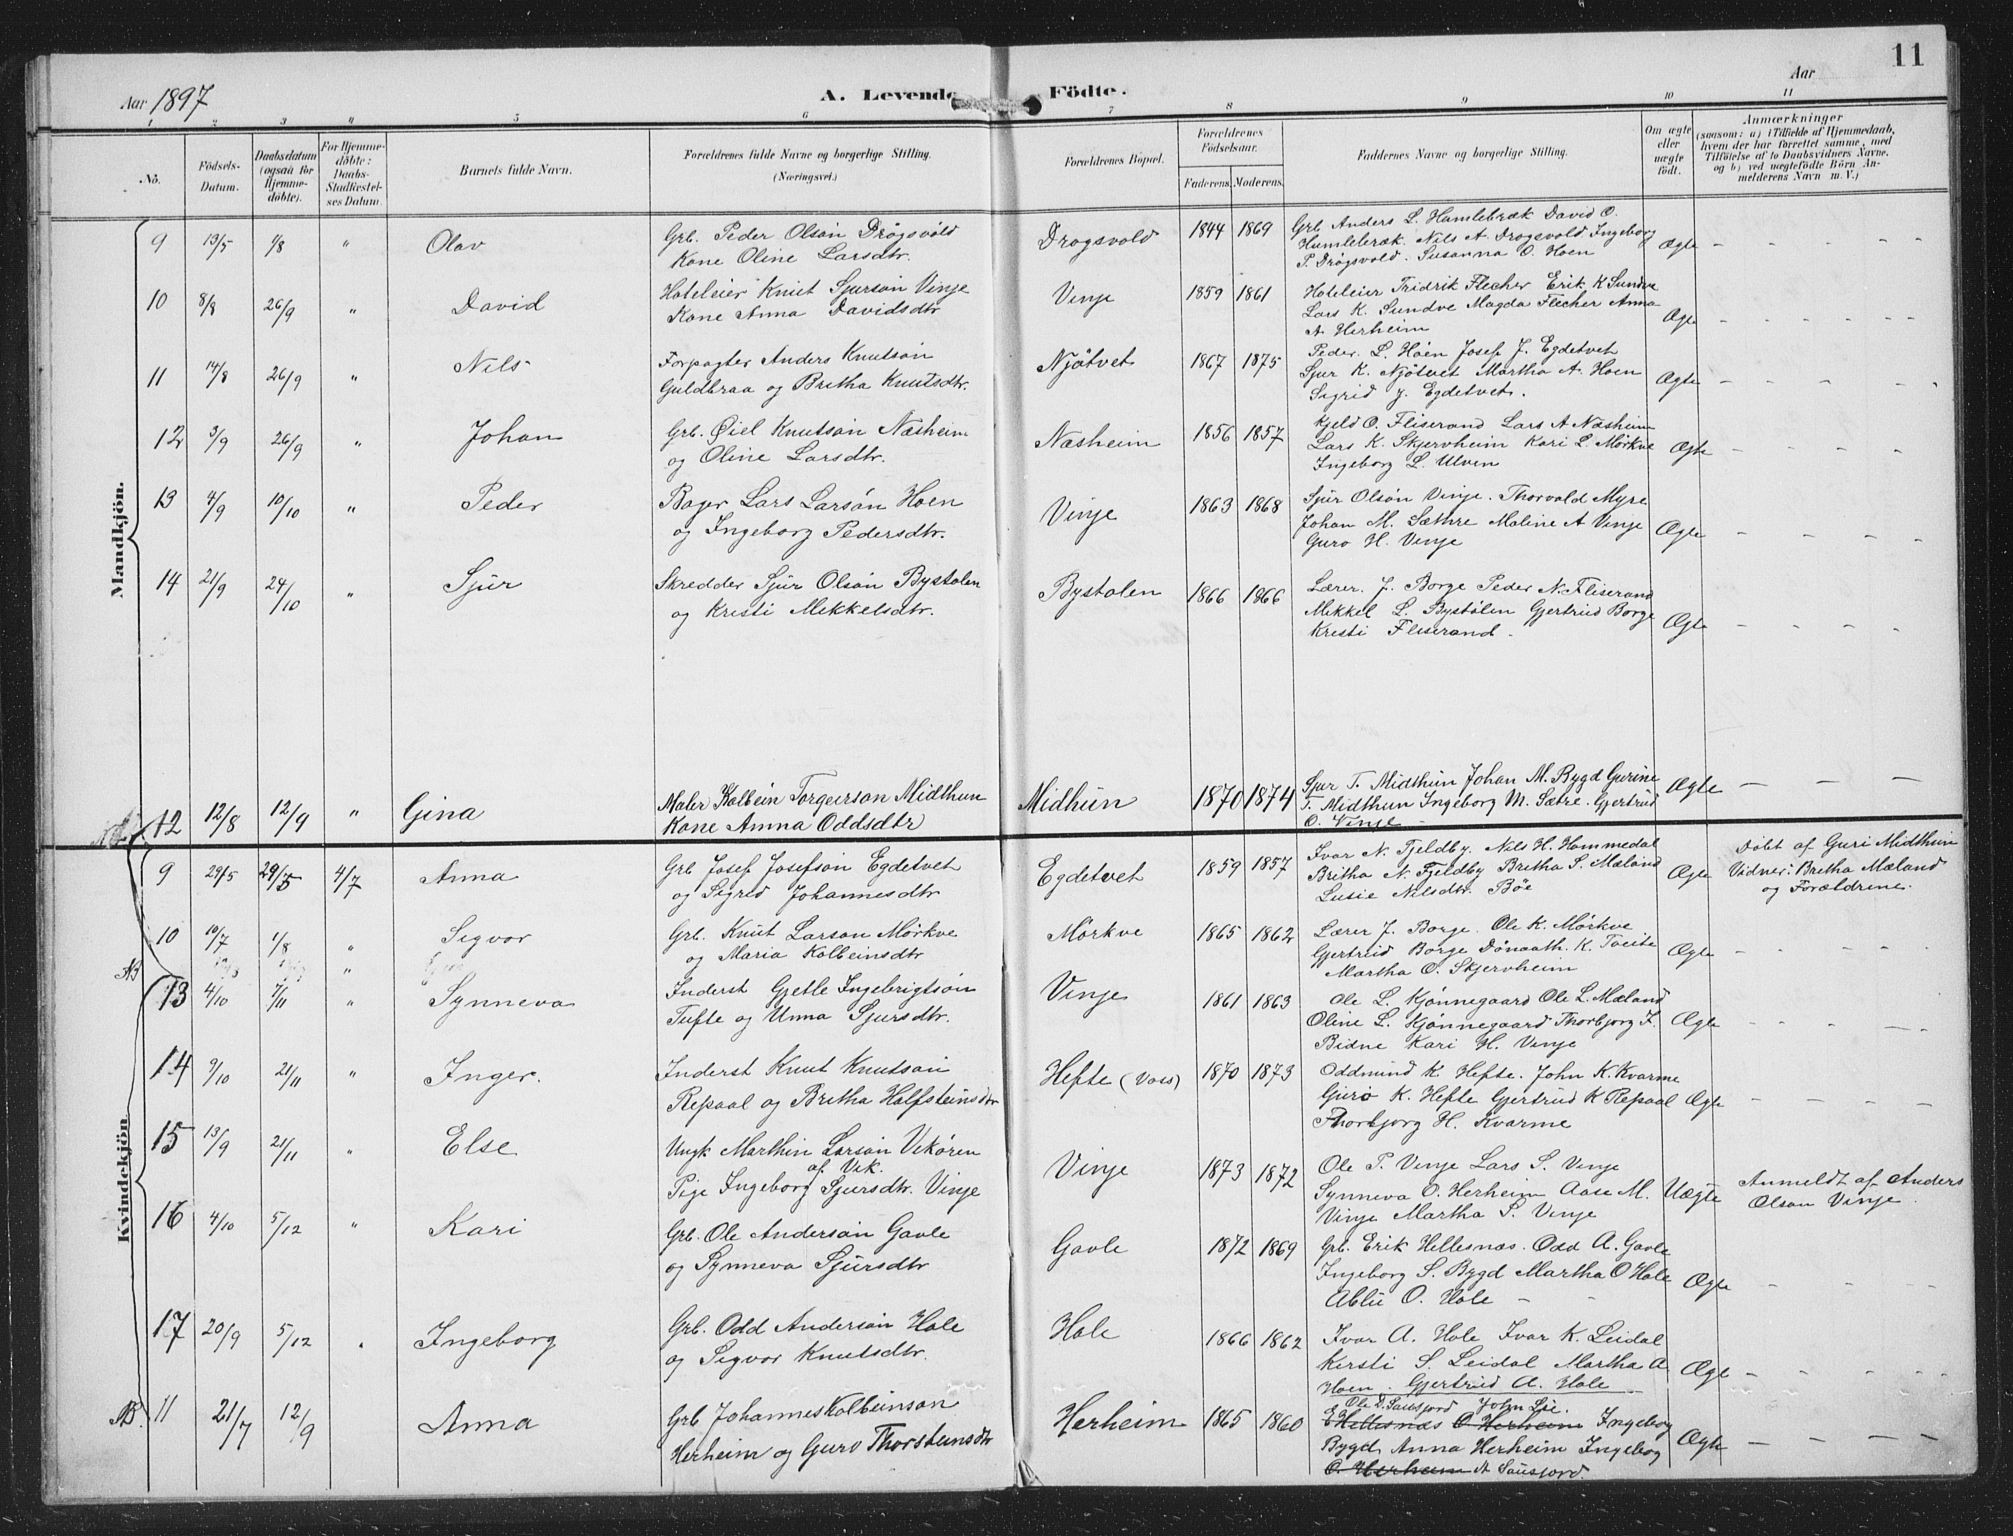 11
Aar 1897
A. Levende Födte.
Aar
1 2 3 4 5 6 7 8 9 10 11
No.
Födsels-Datum.
Daabsdatum (ogsaa for Hjemmedöbte).
For Hjemmedöbte: Daabs-Stadfæstelses Datum.
Barnets fulde Navn.
Forældrenes fulde Navne og borgerlige Stilling. (Næringsvei.)
Forældrenes Bopæl.
Forældrenes Födselsaar.
Faderens. Moderens.
Faddernes Navne og borgerlige Stilling.
Om ægte eller uægte födt.
Anmærkninger
(saasom: a) i Tilfælde af Hjemmedaab, hvem der har forrettet samme, med Tilföielse af to Daabsvidners Navne, og b) ved uægtefödte Börn Anmelderens Navn m. V.)
Mandkjön.
9 13/5 1/8 " Olav
Grb. Peder Olsön Drögsvold
Kone Oline Larsdtr.
Drogsvold 1844 1869
Grb. Anders L. Hamlebræk David O.
Humlebræk. Nils A. Drogsvold Ingeborg
P. Drögsvold. Susanna O. Hoen
Ægte
10 8/8 26/9 " David
Hoteleier Knut Sjursön Vinje
Kone Anna Davidsdtr
Vinje 1859 1861
Hoteleier Fridrik Flecher Erik K Sundve
Lars K. Sundve Magda Flecher Anna
A. Herheim
Ægte
11 14/8 26/9 " Nils
Forpagter Anders Knutsön
Guldbraa og Britha Knutsdtr.
Njötvet 1867 1875
Peder. L. Höen Josef J. Egdetvet
Sjur K. Njötvet Martha A. Hoen
Sigrid J. Egdetvet.
Ægte
12 3/9 26/9 " Johan
Grb. Öiel Knutson Næsheim
og Oline Larsdtr.
Næsheim 1856 1857
Kjeld O. Fliserand Lars A Næsheim
Lars K. Skjervheim Kari L. Mørkve
Ingeborg L. Ulven
Ægte
13 4/9 10/10 " Peder
Bager Lars Larsön Hoen
og Ingeborg Pedersdtr.
Vinje 1863 1868
Sjur Olsön Vinje. Thorvald Myre
Johan M. Sæthre Maline A Vinje
Guro H. Vinje
Ægte
14 21/9 24/10 " Sjur
Skredder Sjur Olsön Bystølen
og Kristi Mekkelsdtr.
Bystølen 1866 1866
Lærer J. Borge Peder N. Fliserand
Mekkel L. Bystølen Gjertrud Borge
Kristi Fliserand.
Ægte
12 12/8 12/9 " Gina
Maler Kolbein Torgeirson Midthun
Kone Anna Oddsdtr
Midhun 1870 1874
Sjur T. Midthun Johan M. Bygd Gurine
T. Midthun Ingeborg M. Sætre. Gjertrud
O. Vinje
Ægte
Kvindekjön
9 29/5 29/5 4/7 Anna
Grb Josef Josefsön Egdetvet
og Sigrid Johannesdtr
Egdetvet 1859 1857
Ivar N. Fjeldby. Nils H. Hommedal
Britha N. Fjeldby Bretha S. Mæland
Lusie Nilsdtr. Böe
Ægte
Döbt af Guri Midthun
Vidner: Bretha Mæland
og Forældrene.
10 10/7 1/8 " Sigvor
Grb. Knut Larson Mörkve
og Maria Kolbeinsdtr
Mörkve 1865 1862
Lærer J. Borge. Ole K. Mörkve
Gjertrud Borge K. Tveite
Martha O. Skjervheim
Ægte
NB
13 4/10 7/11 " Synneva
Inderst Gjetle Ingebrigtsön
Tufte og Unna Sjursdtr.
Vinje 1861 1863
Ole L. Kjönnegaard Ole L. Mæland
Oline L. Kjönnegaard Thorbjorg I.
Bidne Kari H. Vinje
Ægte
14 9/10 21/11 " Inger.
Inderst Knut Knutsön
Repaal og Britha Halfsteinsdtr
Hefte (Voss) 1870 1873
Oddmund K. Hefte. John K. Kvarme
Guro K. Hefte Gjertrud K Repaal
Thorbjorg H. Kvarme
Ægte
15 13/9 21/11 " Else
Ungk Marthin Larsön Vikören
af Vik.
Pige Ingeborg Sjursdtr. Vinje
Vinje 1873 1872
Ole P. Vinje Lars S. Vinje
Synneva O. Herheim Aase M.
Vinje Martha S. Vinje
Uægte
Anmeldt af Anders
Olson Vinje.
16 4/10 5/12 " Kari
Grb. Ole Andersön Gavle
og Synneva Sjursdtr
Gavle 1872 1869
Grb. Erik Hellesnæs. Odd A. Gavle
Ingeborg S. Bygd Martha O Hole
Ablu O. Hole
Ægte
17 20/9 5/12 " Ingeborg
Grb. Odd Andersön Hole
og Sigvor Knutsdtr.
Hole 1866 1862
Ivar A. Hole Ivar K. Leidal
Kersti S. Leidal Martha A
Hoen. Gjertrud A. Hole
Ægte
NB. 11 21/7 12/9 Anna
Grb Johannes Kolbeinson
Herheim og Guro Thorsteinsdtr
Herheim 1865 1860
Ole D. Sausjord John Lie.
E Hellesnæs O Herheim Ingeborg
Bygd Anna Herheim Ingeborg
O. Herheim A Sausjord.
Ægte